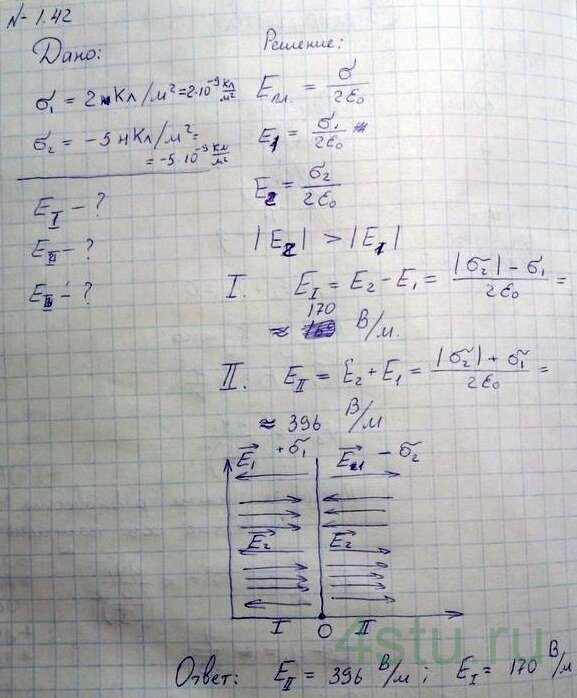 N-1.42
Дано:
σ₁ = 2нКл/м² = 2·10⁻⁹ Кл/м²
σ₂ = -5нКл/м² =
= -5·10⁻⁹ Кл/м²
E_I - ?
E_II - ?
E_III - ?
Решение:
Eпл. = σ/2ε₀
E₁ = σ₁/2ε₀
E₂ = σ₂/2ε₀
|E₂| > |E₁|
I. E_I = E₂ - E₁ = (|σ₂| - σ₁)/2ε₀ =
≈ 170 В/м.
II. E_II = E₂ + E₁ = (|σ₂| + σ₁)/2ε₀ =
≈ 396 В/м
E₁ +σ₁ -σ₂
E₂ E₂
I O II
4stu.ru
Ответ: E_II = 396 В/м; E_I = 170 В/м